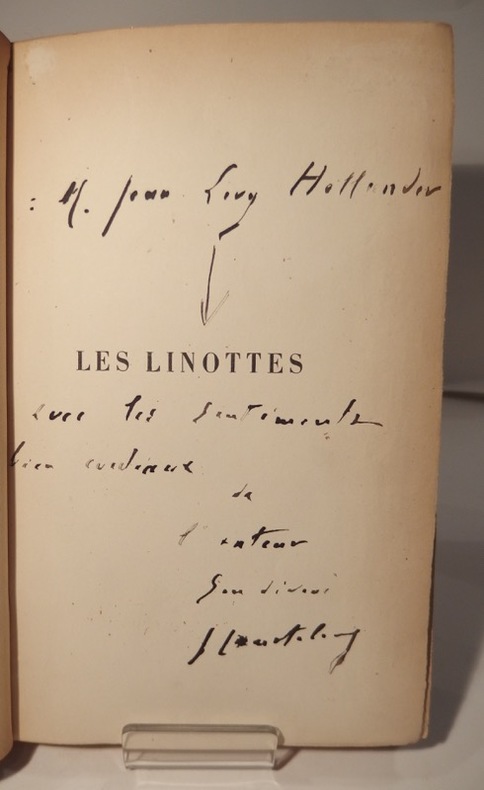 : M. Jean Levy Hollander
LES LINOTTES
avec les sentiments
bien cordiaux
de
l'auteur
G. Courteline